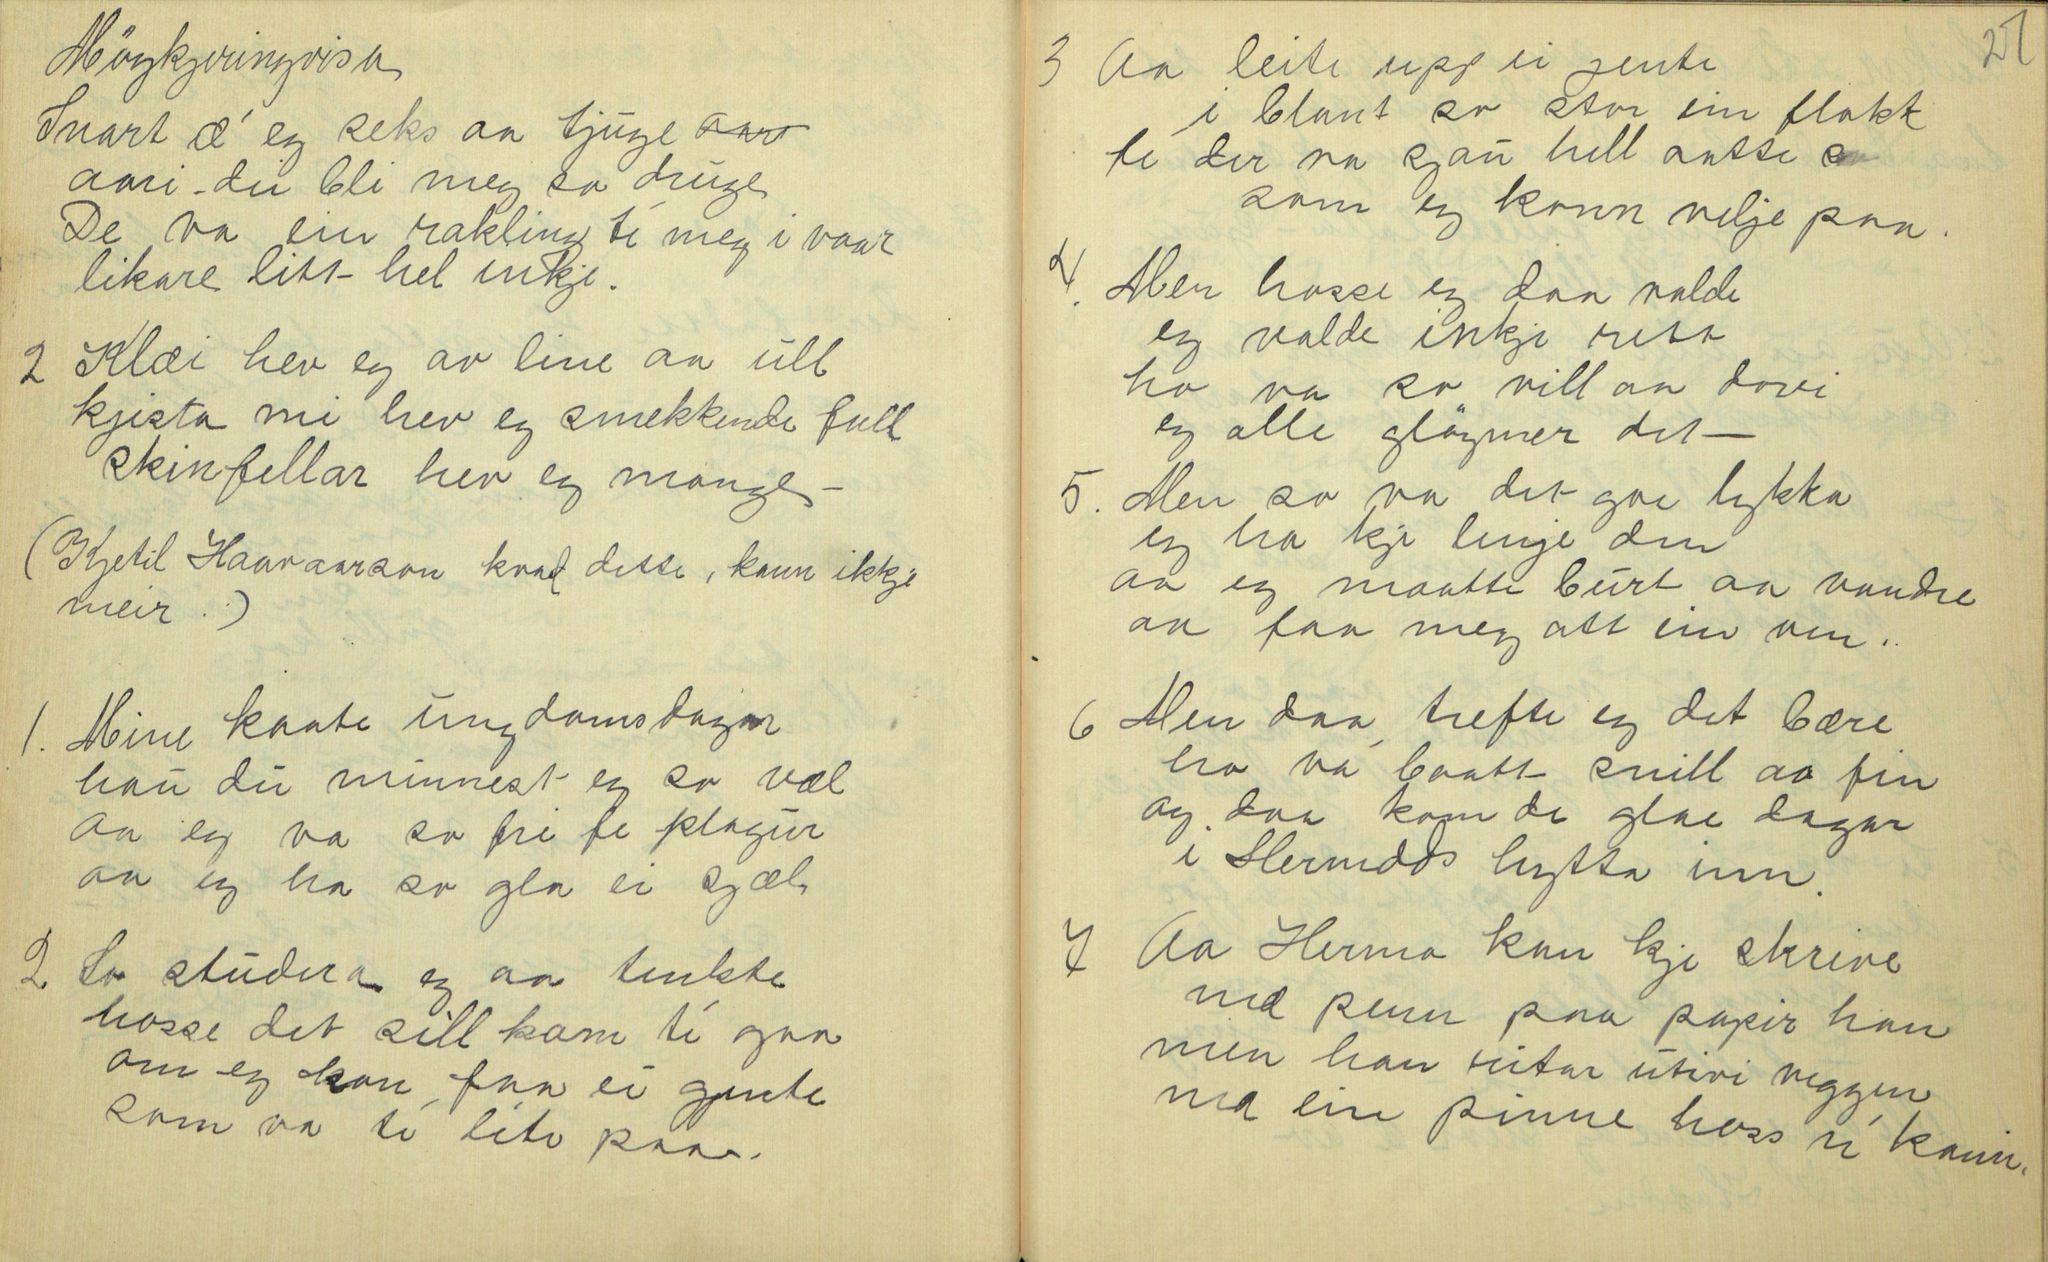 Möykjeringvisa
Snart æ' eg seks aa tjuge aar
aari du bli meg so druge
De va ein rakling ti meg i vaar
likare litt hel inkje.
2 Klæi hev eg av line aa ull
kjista mi hev eg smekkende full
skinfellar hev eg mange -
(Kjetil Haavaarson kvad dette, kann ikkje
meir.)
1. Mine kaate ungdomsdagar
hau du minnest eg so væl
aa eg va so fri fe plagur
aa eg ha so gla ei sjæl
2 So studera eg aa tenkte
hosse det sill kom ti gaa
om eg kan faa ei gjente
som va ti lite paa.
27
3 Aa leite upp ei jente
i blant so stor ein flokk
fe der va sjau hell aatte so
som eg konn velje paa.
4. Men hosse eg daa valde
eg valde inkje rett
ho va so vill aa dovi
eg alle gløymer det -
5. Men so va det goe lykka
eg ha kje lenje den
aa eg maatte burt aa vandre
aa faa meg att ein ven.
6 Men daa trefte eg det bære
ho va baatt snill aa fin
og daa kom de glae dagar
i Hermodds hytta inn.
7 Aa Hermo kan kje skrive
me penn paa papir han
men han ritar utivi veggen
me ein pinne hoss ú kann.